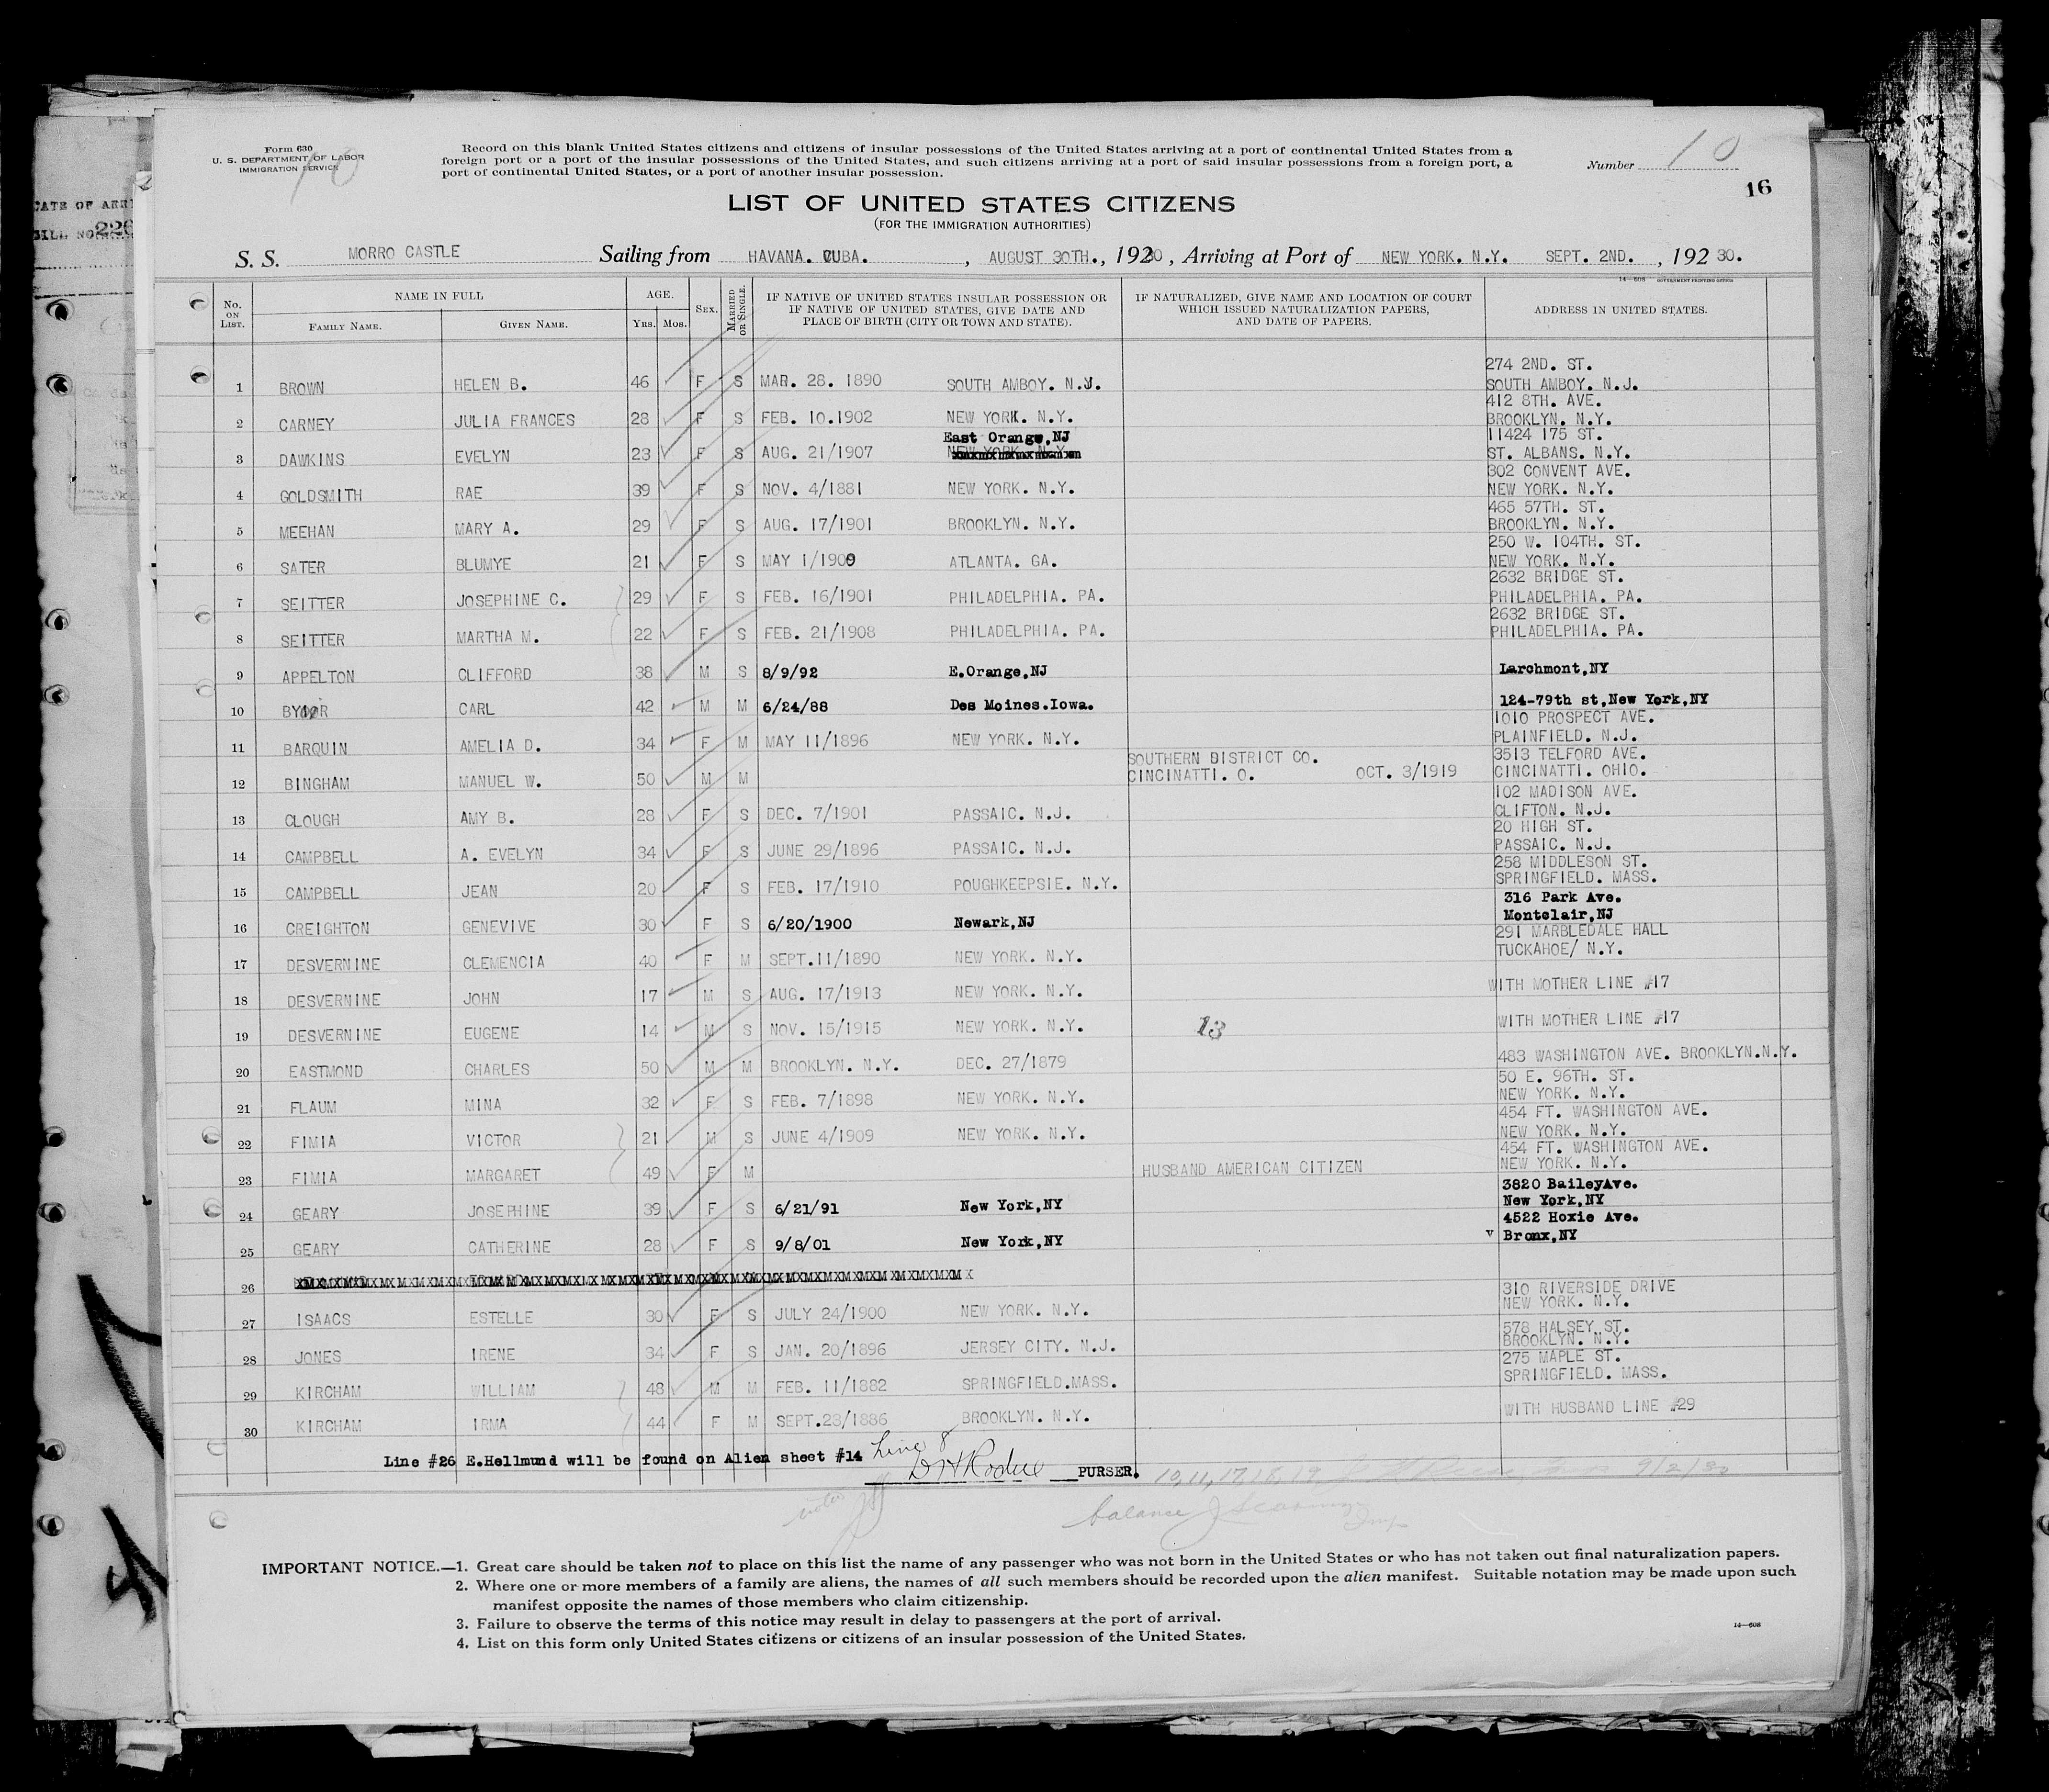 Form 630
U. S. DEPARTMENT OF LABOR
IMMIGRATION SERVICE
10
Record on this blank United States citizens and citizens of insular possessions of the United States arriving at a port of continental United States from a
foreign port or a port of the insular possessions of the United States, and such citizens arriving at a port of said insular possessions from a foreign port, a
port of continental United States, or a port of another insular possession.
Number 10
16
LIST OF UNITED STATES CITIZENS
(FOR THE IMMIGRATION AUTHORITIES)
S. S. MORRO CASTLE Sailing from HAVANA. CUBA. , AUGUST 30TH., 19230 , Arriving at Port of NEW YORK. N.Y. SEPT. 2ND. , 192 30.
14—608 GOVERNMENT PRINTING OFFICE
No. ON LIST. NAME IN FULL FAMILY NAME. GIVEN NAME. AGE. Yrs. Mos. SEX. MARRIED OR SINGLE. IF NATIVE OF UNITED STATES INSULAR POSSESSION OR IF NATIVE OF UNITED STATES, GIVE DATE AND PLACE OF BIRTH (CITY OR TOWN AND STATE). IF NATURALIZED, GIVE NAME AND LOCATION OF COURT WHICH ISSUED NATURALIZATION PAPERS, AND DATE OF PAPERS. ADDRESS IN UNITED STATES.
274 2ND. ST.
1 BROWN HELEN B. 46 F S MAR. 28. 1890 SOUTH AMBOY. N.J. SOUTH AMBOY. N.J.
412 8TH. AVE.
2 CARNEY JULIA FRANCES 28 F S FEB. 10.1902 NEW YORK. N.Y. BROOKLYN. N.Y.
East Orange,NJ 11424 175 ST.
3 DAWKINS EVELYN 23 F S AUG. 21/1907 NEW YORK. N.Y. ST. ALBANS. N.Y.
302 CONVENT AVE.
4 GOLDSMITH RAE 39 F S NOV. 4/1881 NEW YORK. N.Y. NEW YORK. N.Y.
465 57TH. ST.
5 MEEHAN MARY A. 29 F S AUG. 17/1901 BROOKLYN. N.Y. BROOKLYN. N.Y.
250 W. 104TH. ST.
6 SATER BLUMYE 21 F S MAY 1/1909 ATLANTA. GA. NEW YORK. N.Y.
2632 BRIDGE ST.
7 SEITTER JOSEPHINE C. 29 F S FEB. 16/1901 PHILADELPHIA. PA. PHILADELPHIA. PA.
2632 BRIDGE ST.
8 SEITTER MARTHA M. 22 F S FEB. 21/1908 PHILADELPHIA. PA. PHILADELPHIA. PA.
9 APPELTON CLIFFORD 38 M S 8/9/92 E.Orange,NJ Larchmont,NY
10 CARL 42 M M 6/24/88 Des Moines.Iowa. 124-79th st,New York,NY
1010 PROSPECT AVE.
11 BARQUIN AMELIA D. 34 F M MAY 11/1896 NEW YORK. N.Y. PLAINFIELD. N.J.
SOUTHERN DISTRICT CO. 3513 TELFORD AVE.
12 BINGHAM MANUEL W. 50 M M CINCINATTI. O. OCT. 3/1919 CINCINATTI. OHIO.
102 MADISON AVE.
13 CLOUGH AMY B. 28 F S DEC. 7/1901 PASSAIC. N.J. CLIFTON. N.J.
20 HIGH ST.
14 CAMPBELL A. EVELYN 34 F S JUNE 29/1896 PASSAIC. N.J. PASSAIC. N.J.
258 MIDDLESON ST.
15 CAMPBELL JEAN 20 F S FEB. 17/1910 POUGHKEEPSIE. N.Y. SPRINGFIELD. MASS.
316 Park Ave.
16 CREIGHTON GENEVIVE 30 F S 6/20/1900 Newark,NJ Montclair,NJ
291 MARBLEDALE HALL
17 DESVERNINE CLEMENCIA 40 F M SEPT.11/1890 NEW YORK. N.Y. TUCKAHOE/ N.Y.
18 DESVERNINE JOHN 17 M S AUG. 17/1913 NEW YORK. N.Y. WITH MOTHER LINE #17
19 DESVERNINE EUGENE 14 M S NOV. 15/1915 NEW YORK. N.Y. 13 WITH MOTHER LINE #17
20 EASTMOND CHARLES 50 M M BROOKLYN. N.Y. DEC. 27/1879 483 WASHINGTON AVE. BROOKLYN.N.Y.
50 E. 96TH. ST.
21 FLAUM MINA 32 F S FEB. 7/1898 NEW YORK. N.Y. NEW YORK. N.Y.
454 FT. WASHINGTON AVE.
22 FIMIA VICTOR 21 M S JUNE 4/1909 NEW YORK. N.Y. NEW YORK. N.Y.
454 FT. WASHINGTON AVE.
23 FIMIA MARGARET 49 F M HUSBAND AMERICAN CITIZEN NEW YORK. N.Y.
3820 BaileyAve.
24 GEARY JOSEPHINE 39 F S 6/21/91 New York,NY New York,NY
4522 Hoxie Ave.
25 GEARY CATHERINE 28 F S 9/8/01 New York,NY v Bronx,NY
26
310 RIVERSIDE DRIVE
27 ISAACS ESTELLE 30 F S JULY 24/1900 NEW YORK. N.Y. NEW YORK. N.Y.
578 HALSEY ST.
BROOKLYN. N.Y.
28 JONES IRENE 34 F S JAN. 20/1896 JERSEY CITY. N.J.
275 MAPLE ST.
29 KIRCHAM WILLIAM 48 M M FEB. 11/1882 SPRINGFIELD.MASS. SPRINGFIELD. MASS.
30 KIRCHAM IRMA 44 F M SEPT.23/1886 BROOKLYN. N.Y. WITH HUSBAND LINE #29
Line #26 E.Hellmund will be found on Alien sheet #14 Line 8
PURSER. 10, 11, 17, 18, 19 9/2/30
balance
IMPORTANT NOTICE.—1. Great care should be taken not to place on this list the name of any passenger who was not born in the United States or who has not taken out final naturalization papers.
2. Where one or more members of a family are aliens, the names of all such members should be recorded upon the alien manifest. Suitable notation may be made upon such
manifest opposite the names of those members who claim citizenship.
3. Failure to observe the terms of this notice may result in delay to passengers at the port of arrival.
4. List on this form only United States citizens or citizens of an insular possession of the United States.
14—608